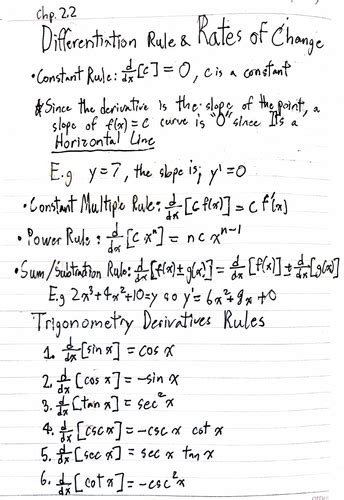 Chp. 2.2
Differentiation Rule & Rates of Change
• Constant Rule: d/dx [c] = 0, c is a constant
* Since the derivative is the slope of the point, a
slope of f(x) = c curve is "0" since It's a
Horizontal Line
E.g y = 7, the slope is; y' = 0
• Constant Multiple Rule: d/dx [c f(x)] = c f'(x)
• Power Rule: d/dx [c xⁿ] = n c xⁿ⁻¹
• Sum/Subtraction Rule: d/dx [f(x) ± g(x)] = d/dx [f(x)] ± d/dx [g(x)]
E.g 2x³ + 4x² + 10 = y so y' = 6x² + 8x + 0
Trigonometry Derivatives Rules
1. d/dx [sin x] = cos x
2. d/dx [cos x] = -sin x
3. d/dx [tan x] = sec² x
4. d/dx [csc x] = -csc x cot x
5. d/dx [sec x] = sec x tan x
6. d/dx [cot x] = -csc² x